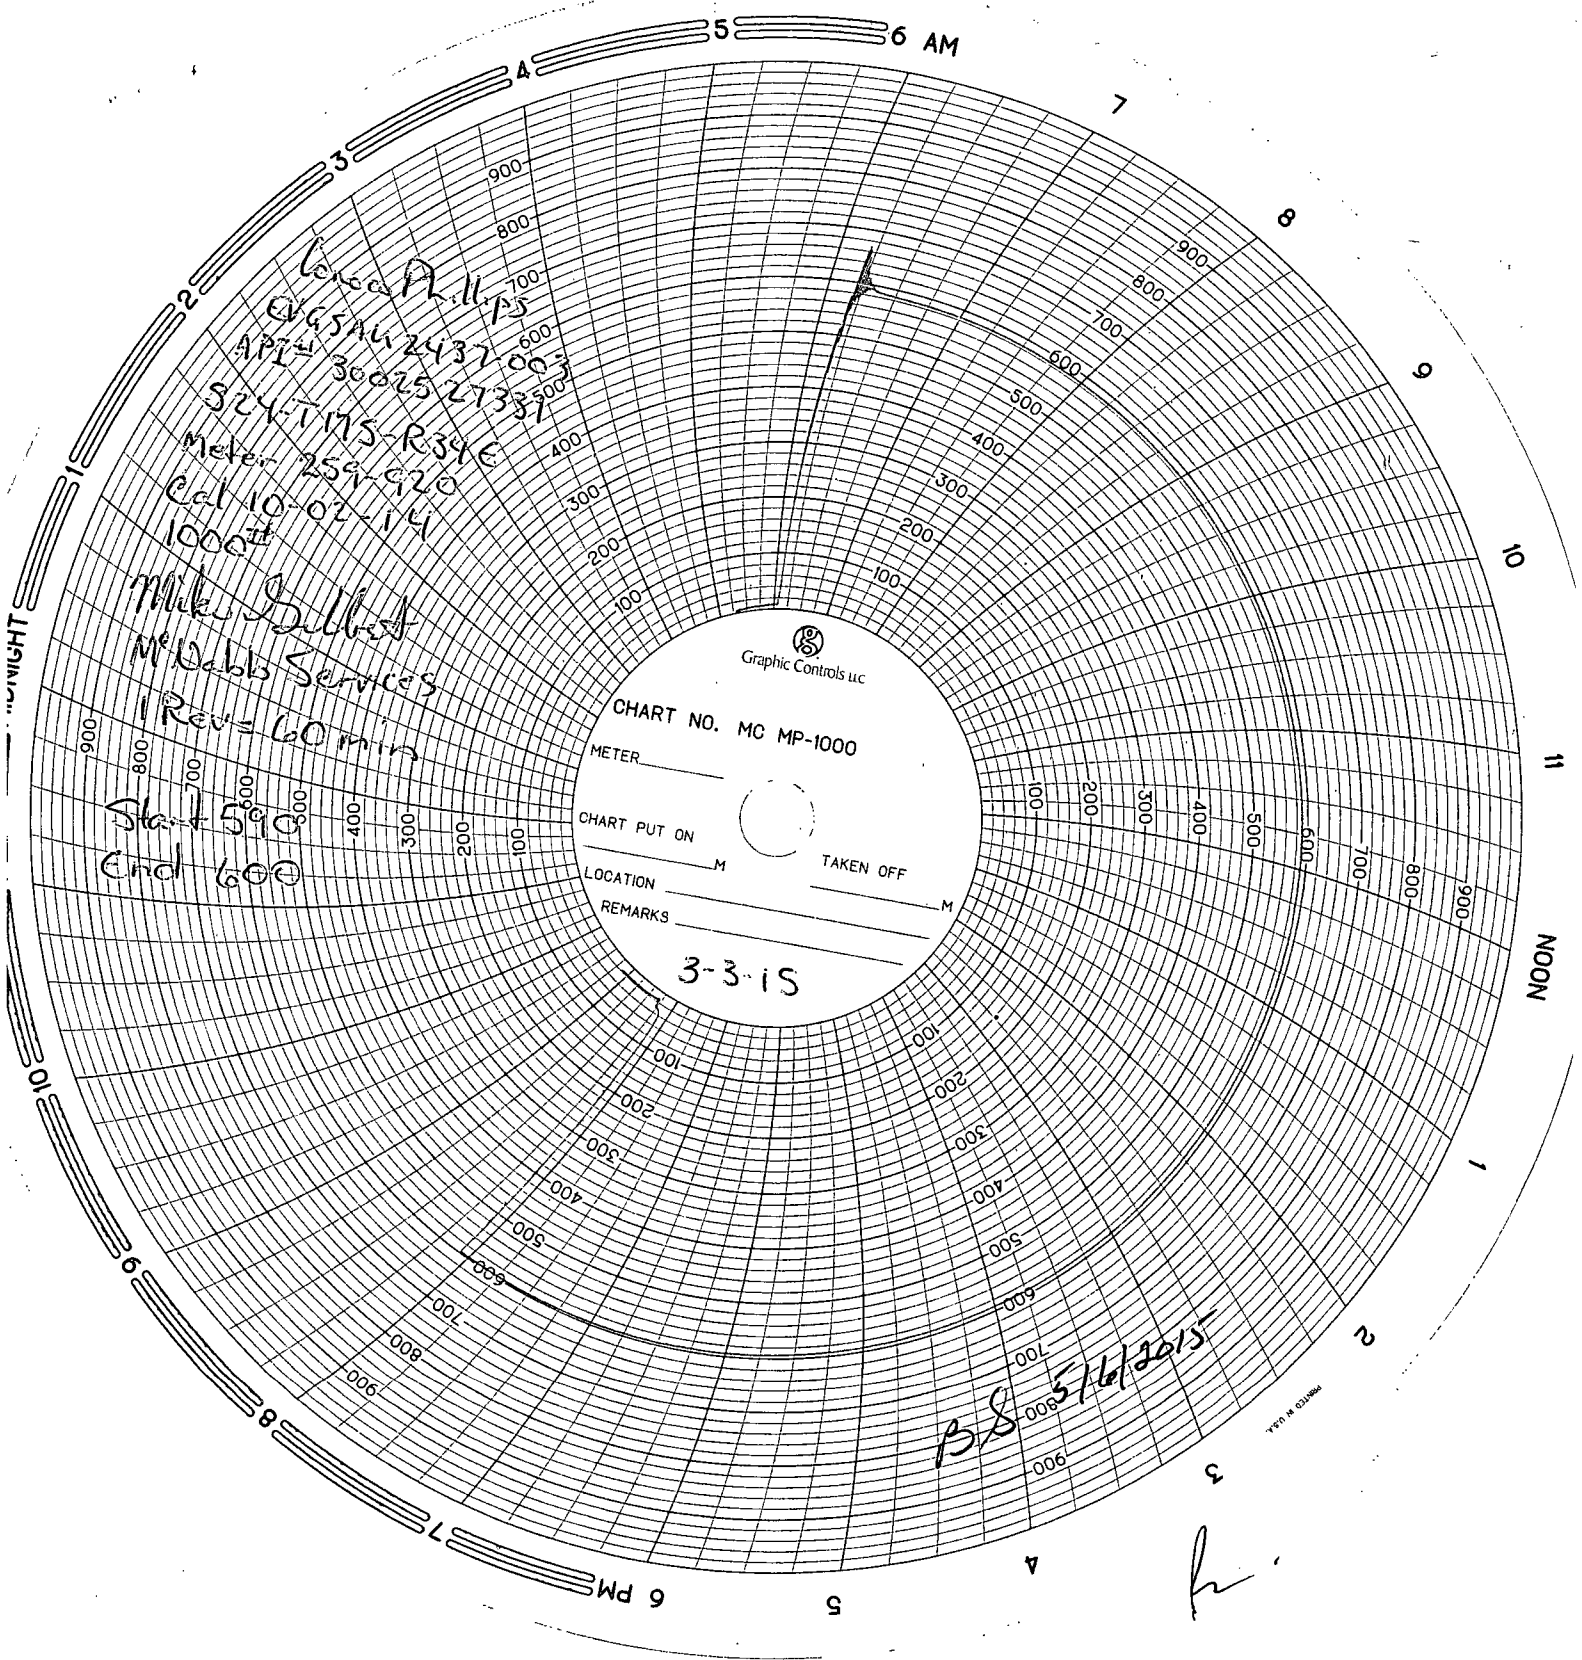 5 6 AM
4
7
3
8
2
9
1
10
MIDNIGHT
11
NOON
10
1
9
2
8
3
7
4
6 PM
5
900 800 700 600 500 400 300 200 100
900 800 700 600 500 400 300 200 100
900 800 700 600 500 400 300 200 100
100 200 300 400 500 600 700 800 900
100 200 300 400 500 600 700 800 900
100 200 300 400 500 600 700 800 900
Conoco Phillips
EVGSAU 2437-003
API# 30025 27331
S24-T17S-R34E
Meter 259-920
Cal 10-02-14
1000#
Mike
Services
1 Rev = 60 min
Start 590
End 600
Graphic Controls LLC
CHART NO. MC MP-1000
METER
CHART PUT ON
M
TAKEN OFF
M
LOCATION
REMARKS
3-3-15
BS 5/6/2015
PRINTED IN U.S.A.